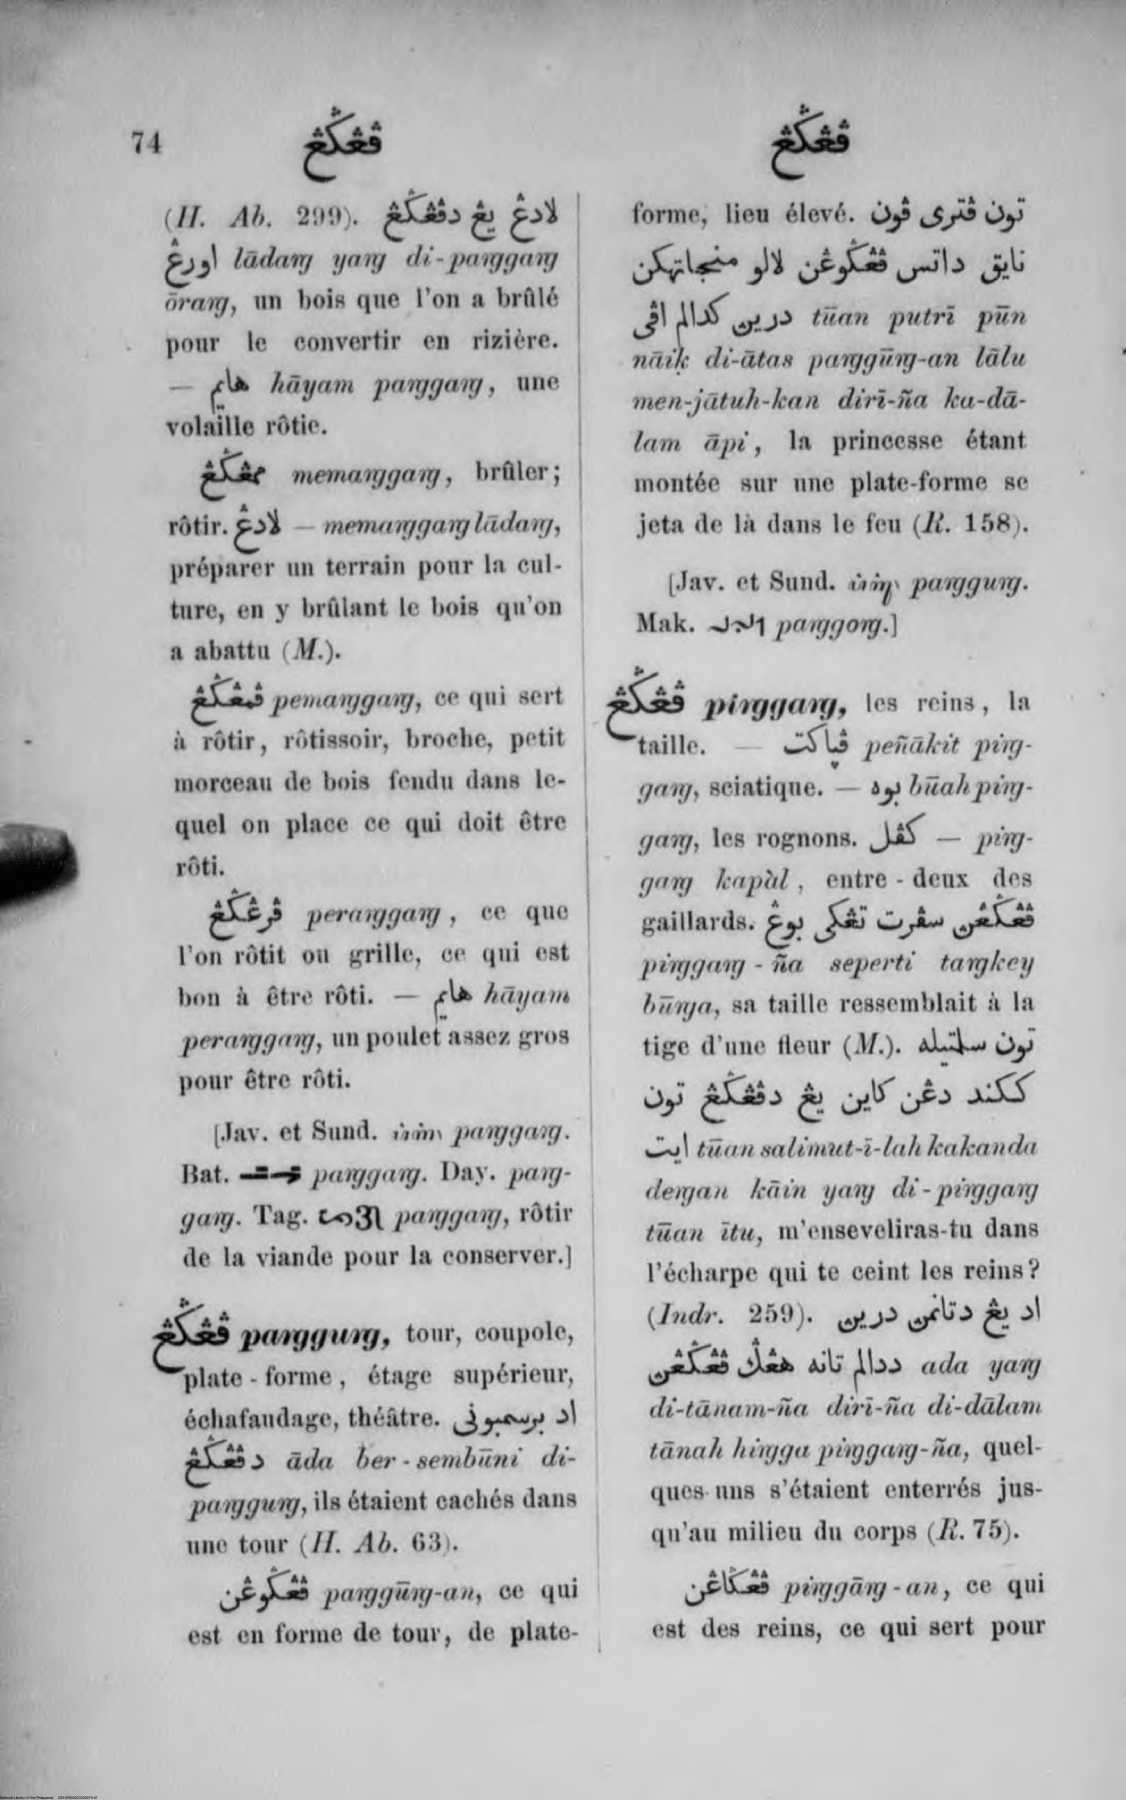 74 ڤڠݢڠ ڤڠݢڠ
(H. Ab. 299). لادڠ يڠ دڤڠݢڠ
اورڠ lādang yang di-panggang
ōrang, un bois que l'on a brûlé
pour le convertir en rizière.
— هايم hāyam panggang, une
volaille rôtie.
ممڠݢڠ memanggang, brûler;
rôtir. لادڠ — memanggang lādang,
préparer un terrain pour la cul-
ture, en y brûlant le bois qu'on
a abattu (M.).
ڤمڠݢڠ pemanggang, ce qui sert
à rôtir, rôtissoir, broche, petit
morceau de bois fendu dans le-
quel on place ce qui doit être
rôti.
ڤرڠݢڠ peranggang, ce que
l'on rôtit ou grille, ce qui est
bon à être rôti. — هايم hāyam
peranggang, un poulet assez gros
pour être rôti.
[Jav. et Sund. panggang.
Bat. panggang. Day. pang-
gang. Tag. panggang, rôtir
de la viande pour la conserver.]
ڤڠݢڠ panggung, tour, coupole,
plate-forme, étage supérieur,
échafaudage, théâtre. اد برسمبوني
دڤڠݢڠ āda ber-sembūni di-
panggung, ils étaient cachés dans
une tour (H. Ab. 63).
ڤڠݢوڠن panggūng-an, ce qui
est en forme de tour, de plate-
forme, lieu élevé. تون ڤتري ڤون
نايق داتس ڤڠݢوڠن لالو منجاتهكن
درين كدالم اڤي tūan putrī pūn
nāiḳ di-ātas panggūng-an lālu
men-jātuh-kan dirī-ña ka-dā-
lam āpi, la princesse étant
montée sur une plate-forme se
jeta de là dans le feu (R. 158).
[Jav. et Sund. panggung.
Mak. panggong.]
ڤڠݢڠ pinggang, les reins, la
taille. — ڤپاكت peñākit ping-
gang, sciatique. — بوه būah ping-
gang, les rognons. كڤل — ping-
gang kapàl, entre-deux des
gaillards. ڤڠݢڠن سڤرت تڠكي بوڠ
pinggang-ña seperti tangkey
būnga, sa taille ressemblait à la
tige d'une fleur (M.). تون سلمتيله
ككند دڠن كاين يڠ دڤڠݢڠ تون
ايت tūan salimut-ī-lah kakanda
dengan kāin yang di-pinggang
tūan ītu, m'enseveliras-tu dans
l'écharpe qui te ceint les reins?
(Indr. 259). اد يڠ دتانمن درين
ددالم تانه هڠݢ ڤڠݢڠن ada yang
di-tānam-ña dirī-ña di-dālam
tānah hingga pinggang-ña, quel-
ques uns s'étaient enterrés jus-
qu'au milieu du corps (R. 75).
ڤڠݢاڠن pinggāng-an, ce qui
est des reins, ce qui sert pour